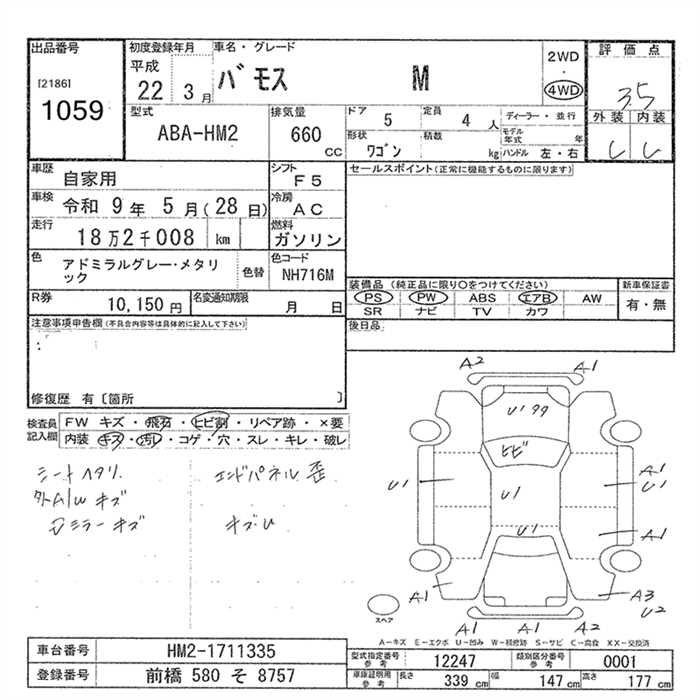 出品番号
[2186]
1059
初度登録年月
平成
22 3月
車名・グレード
バモス M
2WD
・
4WD
評価点
3.5
外装 内装
型式
ABA-HM2
排気量
660
CC
ドア
5
定員
4 人
ディーラー・並行
形状
ワゴン
積載
kg
モデル年式 年
ハンドル 左・右
車歴
自家用
シフト
F5
セールスポイント(正常に機能するものに限ります)
車検
令和 9年 5月(28日)
冷房
AC
走行
18万2千008 km
燃料
ガソリン
色
アドミラルグレー・メタリ
ック
色替
色コード
NH716M
装備品 (純正品に限り○をつけてください)
PS PW ABS エアB AW
SR ナビ TV カワ
新車保証書
有・無
R券
10,150 円
名変通知期限
月 日
後日品
注意事項申告欄 (不具合内容等は具体的に記入して下さい)
修復歴 有 〔箇所 〕
検査員
記入欄
FW キズ・飛石・ヒビ割・リペア跡・×要
内装 キズ・汚レ・コゲ・穴・スレ・キレ・破レ
シートヘタリ
外A/W キズ
ミラーキズ
エンドパネル歪
キズU
A2
A1
U1
ヒビ
U1
U1
U1
A1
U1
A1
A1
A3
U2
A1
A1
A2
スペア
A-キズ E-エクボ U-凹み W-補修跡 S-サビ C-腐食 XX-交換済
車台番号
HM2-1711335
登録番号
前橋 580 そ 8757
型式指定番号
参考
12247
類別区分番号
参考
0001
車庫証明用
参考
長さ
339 cm
幅
147 cm
高さ
177 cm